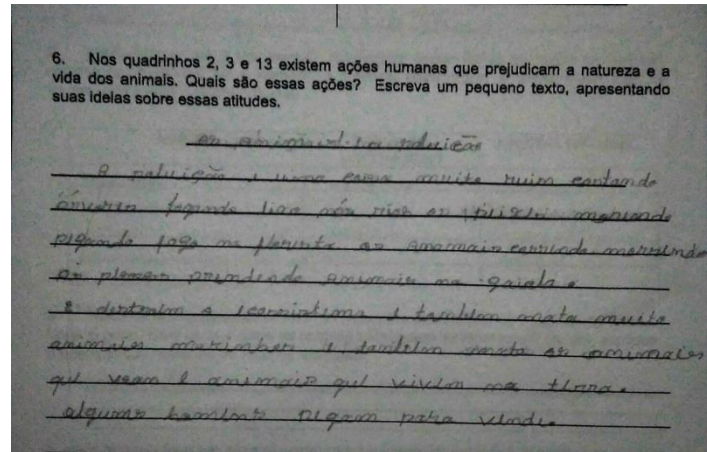 6. Nos quadrinhos 2, 3 e 13 existem ações humanas que prejudicam a natureza e a
vida dos animais. Quais são essas ações? Escreva um pequeno texto, apresentando
suas ideias sobre essas atitudes.
os animais e a poluição
A poluição e uma coisa muita ruim cortando
árvores jogando lixo nós rios os
pegando fogo na floresta os correndo morrendo
prendendo animais na gaiola.
e também mata muita
animais marinhos e também mata os animais
que voam e animais que vivem na terra.
alguns pegam para vende.